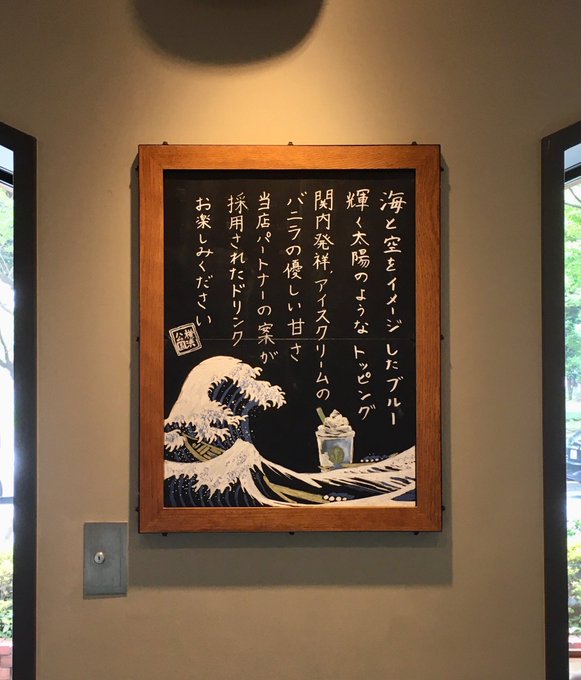 海と空をイメージしたブルー
輝く太陽のようなトッピング
関内発祥、アイスクリームの
バニラの優しい甘さ
当店パートナーの案が
採用されたドリンク
お楽しみください
横浜
公園